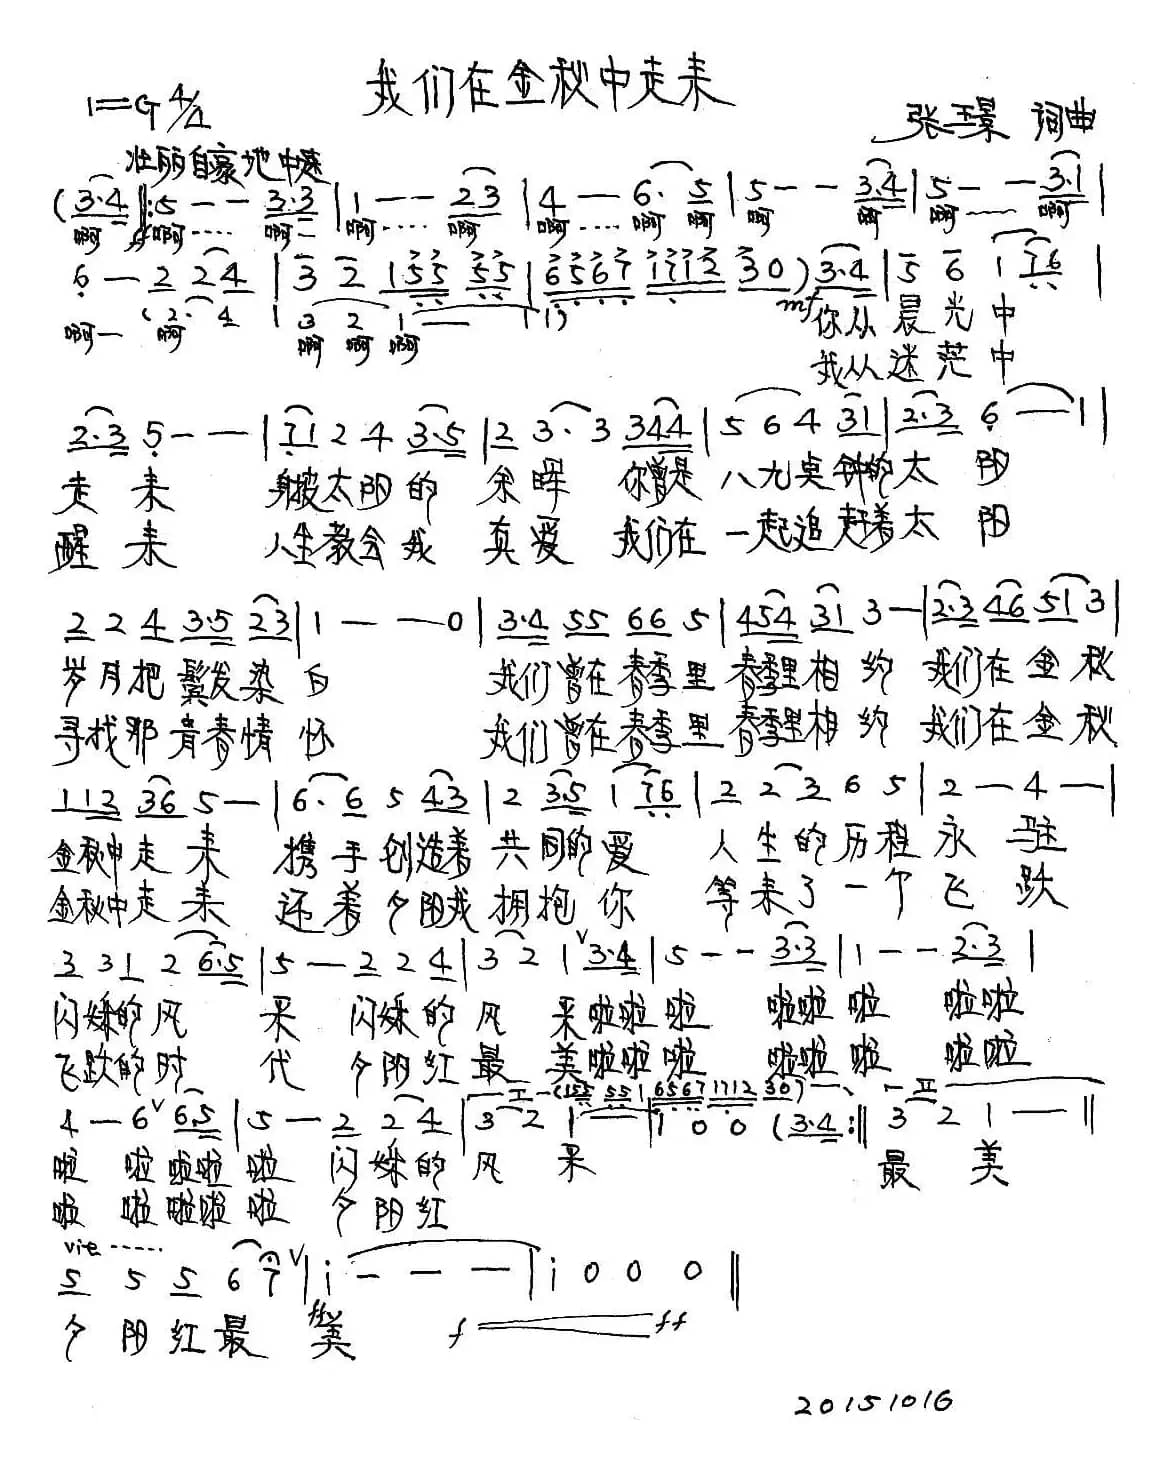 我们在金秋中走来
1=G 4/4
张玉景 词曲
壮丽自豪地 中速
(3·4 ‖: 5 - - 3·3 | 1 - - - 2 3 | 4 - 6· 5 | 5 - - 3·4 | 5 - - 3·1 |
啊 ff 啊…… 啊一 啊…… 啊 啊…… 啊 啊 啊 啊 啊…… 啊
6 - 2 2 4 | 3 2 1 5 5 5 5 | 6 5 6 7 1 7 1 2 3 0 ) 3·4 | 5 6 1 7 6 |
(2· 4 | 3 2 1 - | 1)
啊一 啊 啊 啊 啊 mf 你从晨光中
我从迷茫中
2·3 5 - - | 7 1 2 4 3·5 | 2 3· 3 3 4 4 | 5 6 4 3 1 | 2·3 6 - 1 |
走来 身披太阳的余晖 你曾是八九点钟的太阳
醒来 人生教会我真爱 我们在一起追赶着太阳
2 2 4 3·5 2 3 | 1 - - 0 | 3·4 5 5 6 6 5 | 4 5 4 3 1 3 - | 2·3 4 6 5 1 3 |
岁月把鬓发染白 我们曾在春季里春季里相约 我们在金秋
寻找那青春情怀 我们曾在春季里春季里相约 我们在金秋
1 1 2 3 6 5 - | 6· 6 5 4 3 | 2 3·5 1 7 6 | 2 2 3 6 5 | 2 - 4 - |
金秋中走来 携手创造着共同的爱 人生的历程永驻
金秋中走来 还着夕阳我拥抱你 等来了一个飞跃
3 3 1 2 6·5 | 5 - 2 2 4 | 3 2 1 ∨ 3·4 | 5 - - 3·3 | 1 - - 2·3 |
闪烁的风采 闪烁的风采啦啦啦 啦啦啦 啦啦
飞跃的时代 夕阳红最美啦啦啦 啦啦啦 啦啦
I (1 5 5 5 5 | 6 5 6 7 1 7 1 2 3 0) II
4 - 6 ∨ 6 5 | 5 - 2 2 4 | 3 2 1 - | 1 0 0 (3·4 :‖ 3 2 1 - - ‖
啦 啦啦啦啦 闪烁的风采 最美
啦 啦啦啦啦 夕阳红
5 5 5 6 7 ∨ | i - - - | i 0 0 0 ‖
夕阳红最 美 f ff
20151016